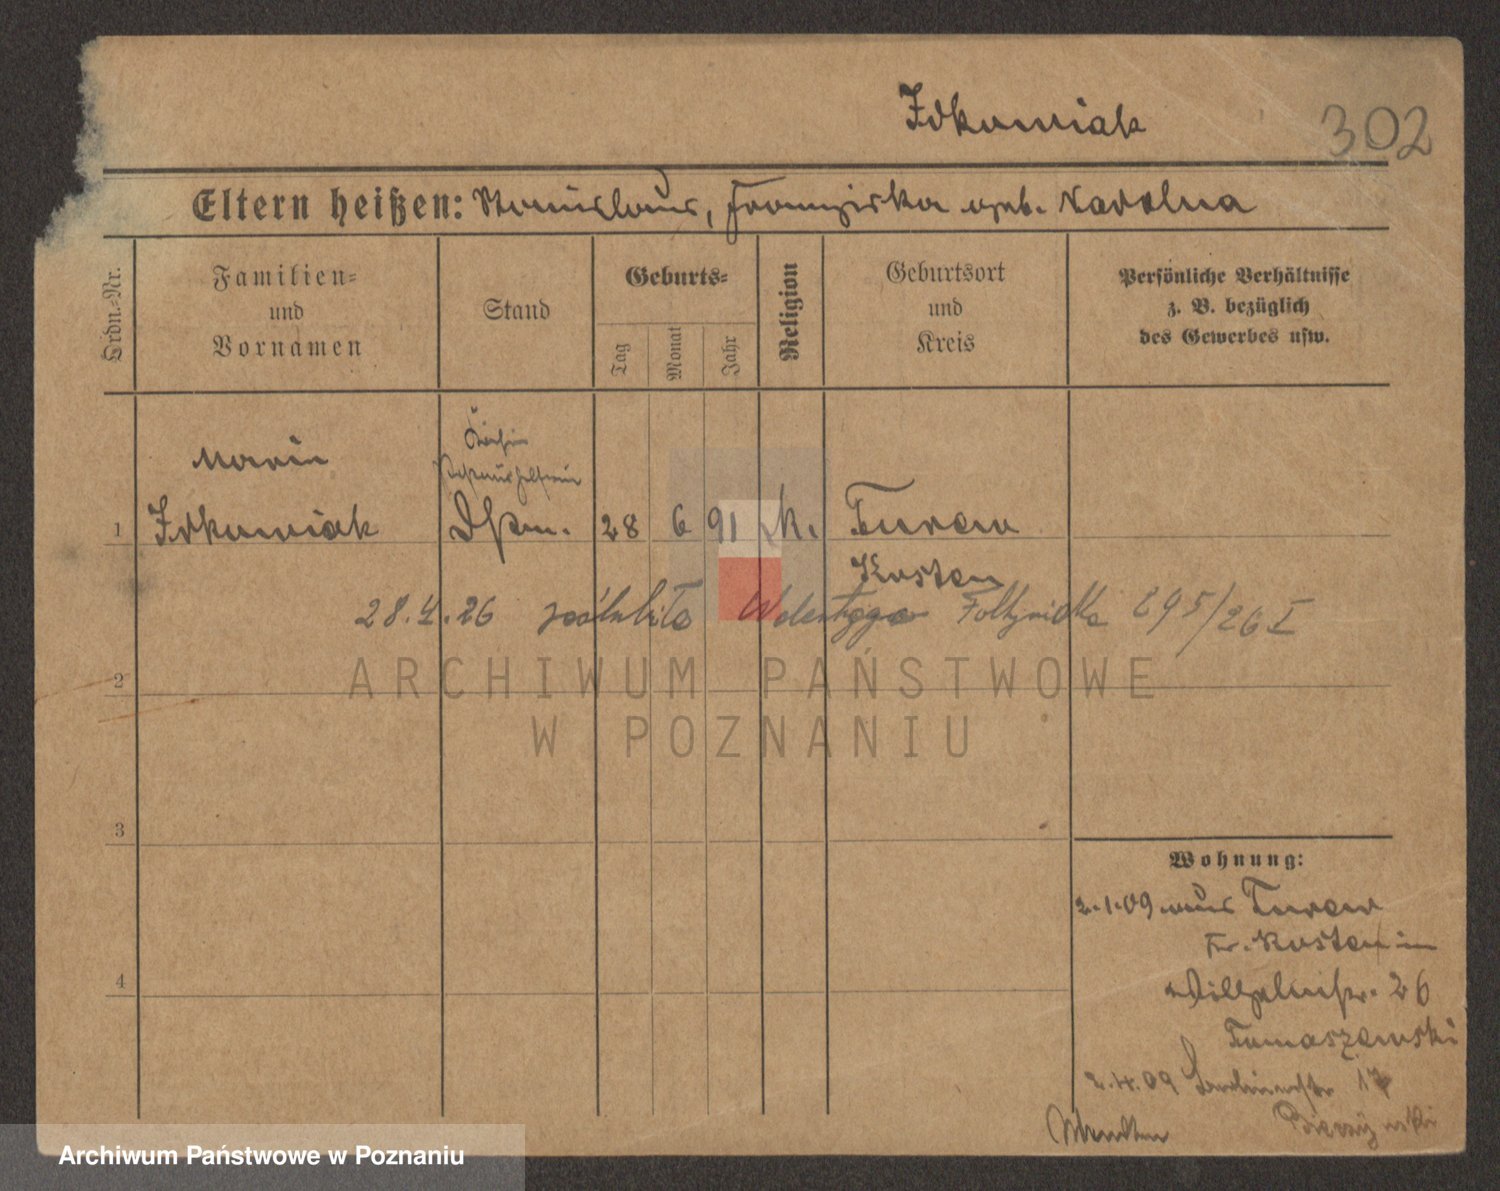 Idkowiak
302
Eltern heißen: Stanislaus, Franziska geb. Karolna
Ordn.-Nr.
Familien-
und
Vornamen
Stand
Geburts-
Tag
Monat
Jahr
Religion
Geburtsort
und
Kreis
Persönliche Verhältnisse
z. B. bezüglich
des Gewerbes usw.
Maria
1 Idkowiak
28 6 91 k. Turew
Kosten
28.4.26 poślubiła 295/26 I
ARCHIWUM PAŃSTWOWE
W POZNANIU
2
3
4
Wohnung:
2.1.09 aus Turew
Kr. Kosten in
Wilhelmstr. 26
Tomaszewski
2.4.09 17
Archiwum Państwowe w Poznaniu